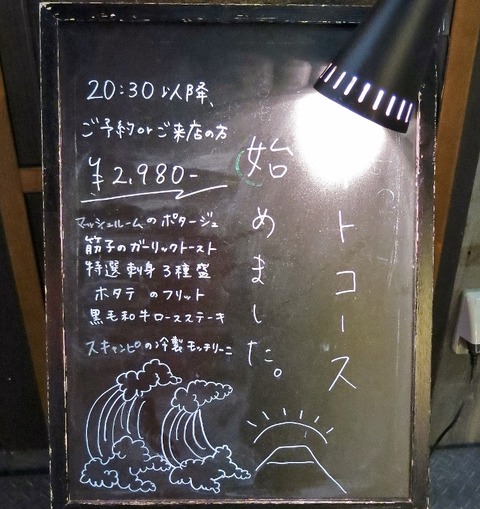 トコース
始めました。
20:30以降、
ご予約orご来店の方
¥2,980-
マッシュルームのポタージュ
筋子のガーリックトースト
特選刺身3種盛
ホタテのフリット
黒毛和牛ロースステーキ
スキャンピの冷製モッチリーニ